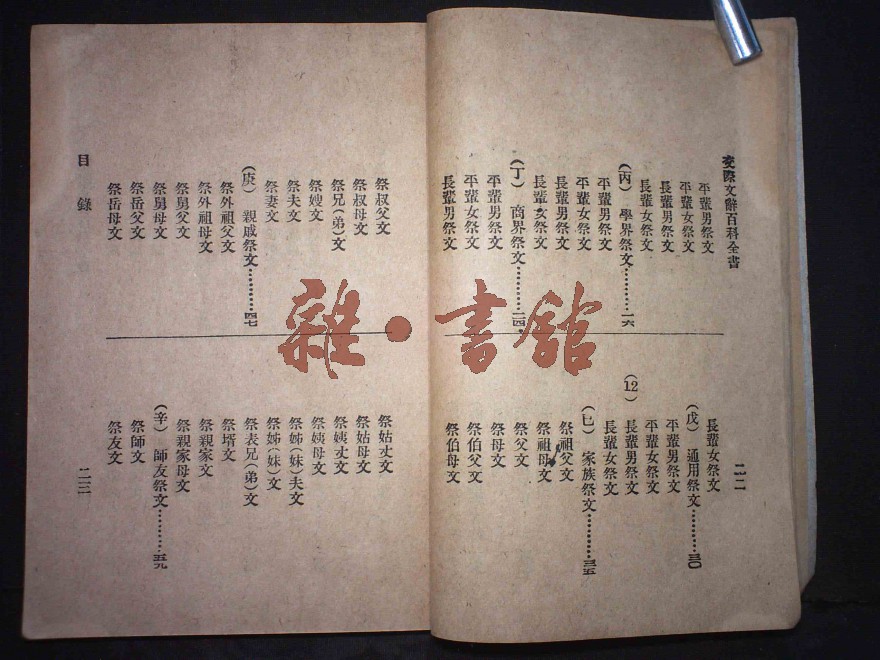 交際文辭百科全書
平輩男祭文
平輩女祭文
長輩男祭文
長輩女祭文
(丙) 學界祭文………一六
平輩男祭文
平輩女祭文
長輩男祭文
長輩女祭文
(丁) 商界祭文………二四
平輩男祭文
平輩女祭文
長輩男祭文
二二
長輩女祭文
(戊) 通用祭文………三〇
平輩男祭文
平輩女祭文
長輩男祭文
(12)
長輩女祭文
(巳) 家族祭文………三五
祭祖父文
祭祖母文
祭父文
祭母文
祭伯父文
祭伯母文
祭叔父文
祭叔母文
祭兄(弟)文
祭嫂文
祭夫文
祭妻文
(庚) 親戚祭文………四七
祭外祖父文
祭外祖母文
祭舅父文
祭舅母文
祭岳父文
祭岳母文
目錄
祭姑丈文
祭姑母文
祭姨丈文
祭姨母文
祭姊(妹)夫文
祭姊(妹)文
祭表兄(弟)文
祭壻文
祭親家文
祭親家母文
(辛) 師友祭文………五九
祭師文
祭友文
二三
雜·書館